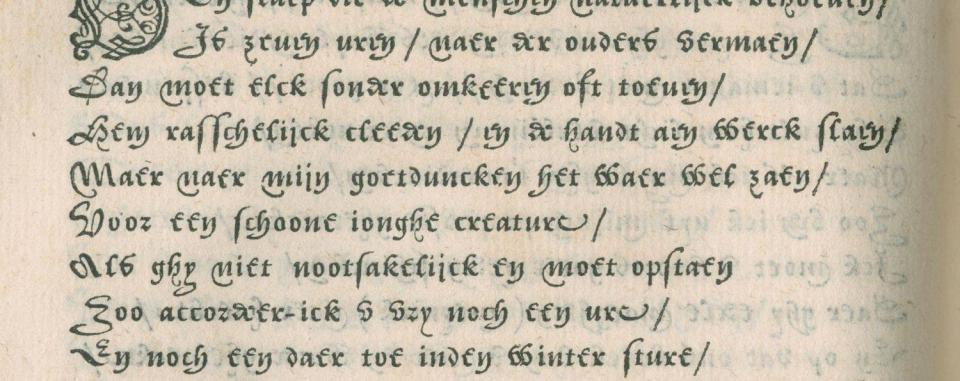 slaep die de menschen natuerlijck behoeven/
Is zeven uren / naer der ouders vermaen/
Dan moet elck sonder omkeeren oft toeven/
Hem rasschelijck cleeden / en de handt aen werck slaen/
Maer naer mijn goetduncken het waer wel zaen/
Voor een schoone ionghe creature/
Als ghy niet nootsakelijck en moet opstaen
Zoo accordeer-ick v vry noch een ure/
En noch een daer toe inden winter sture/